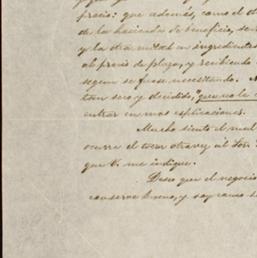 precio: que además, como el
de la hacienda de beneficio, se
y la otra mitad en ingredientes
al precio de plaza, y recibiendo
segun se fuese necesitando.
tan seco y decidido, "que no le
entrar en mas esplicaciones.
Mucho siento el mal
ocurre el tocar otra vez al Sor
que V. me indique.
Deseo que el negocio
conserve bueno, y soy como